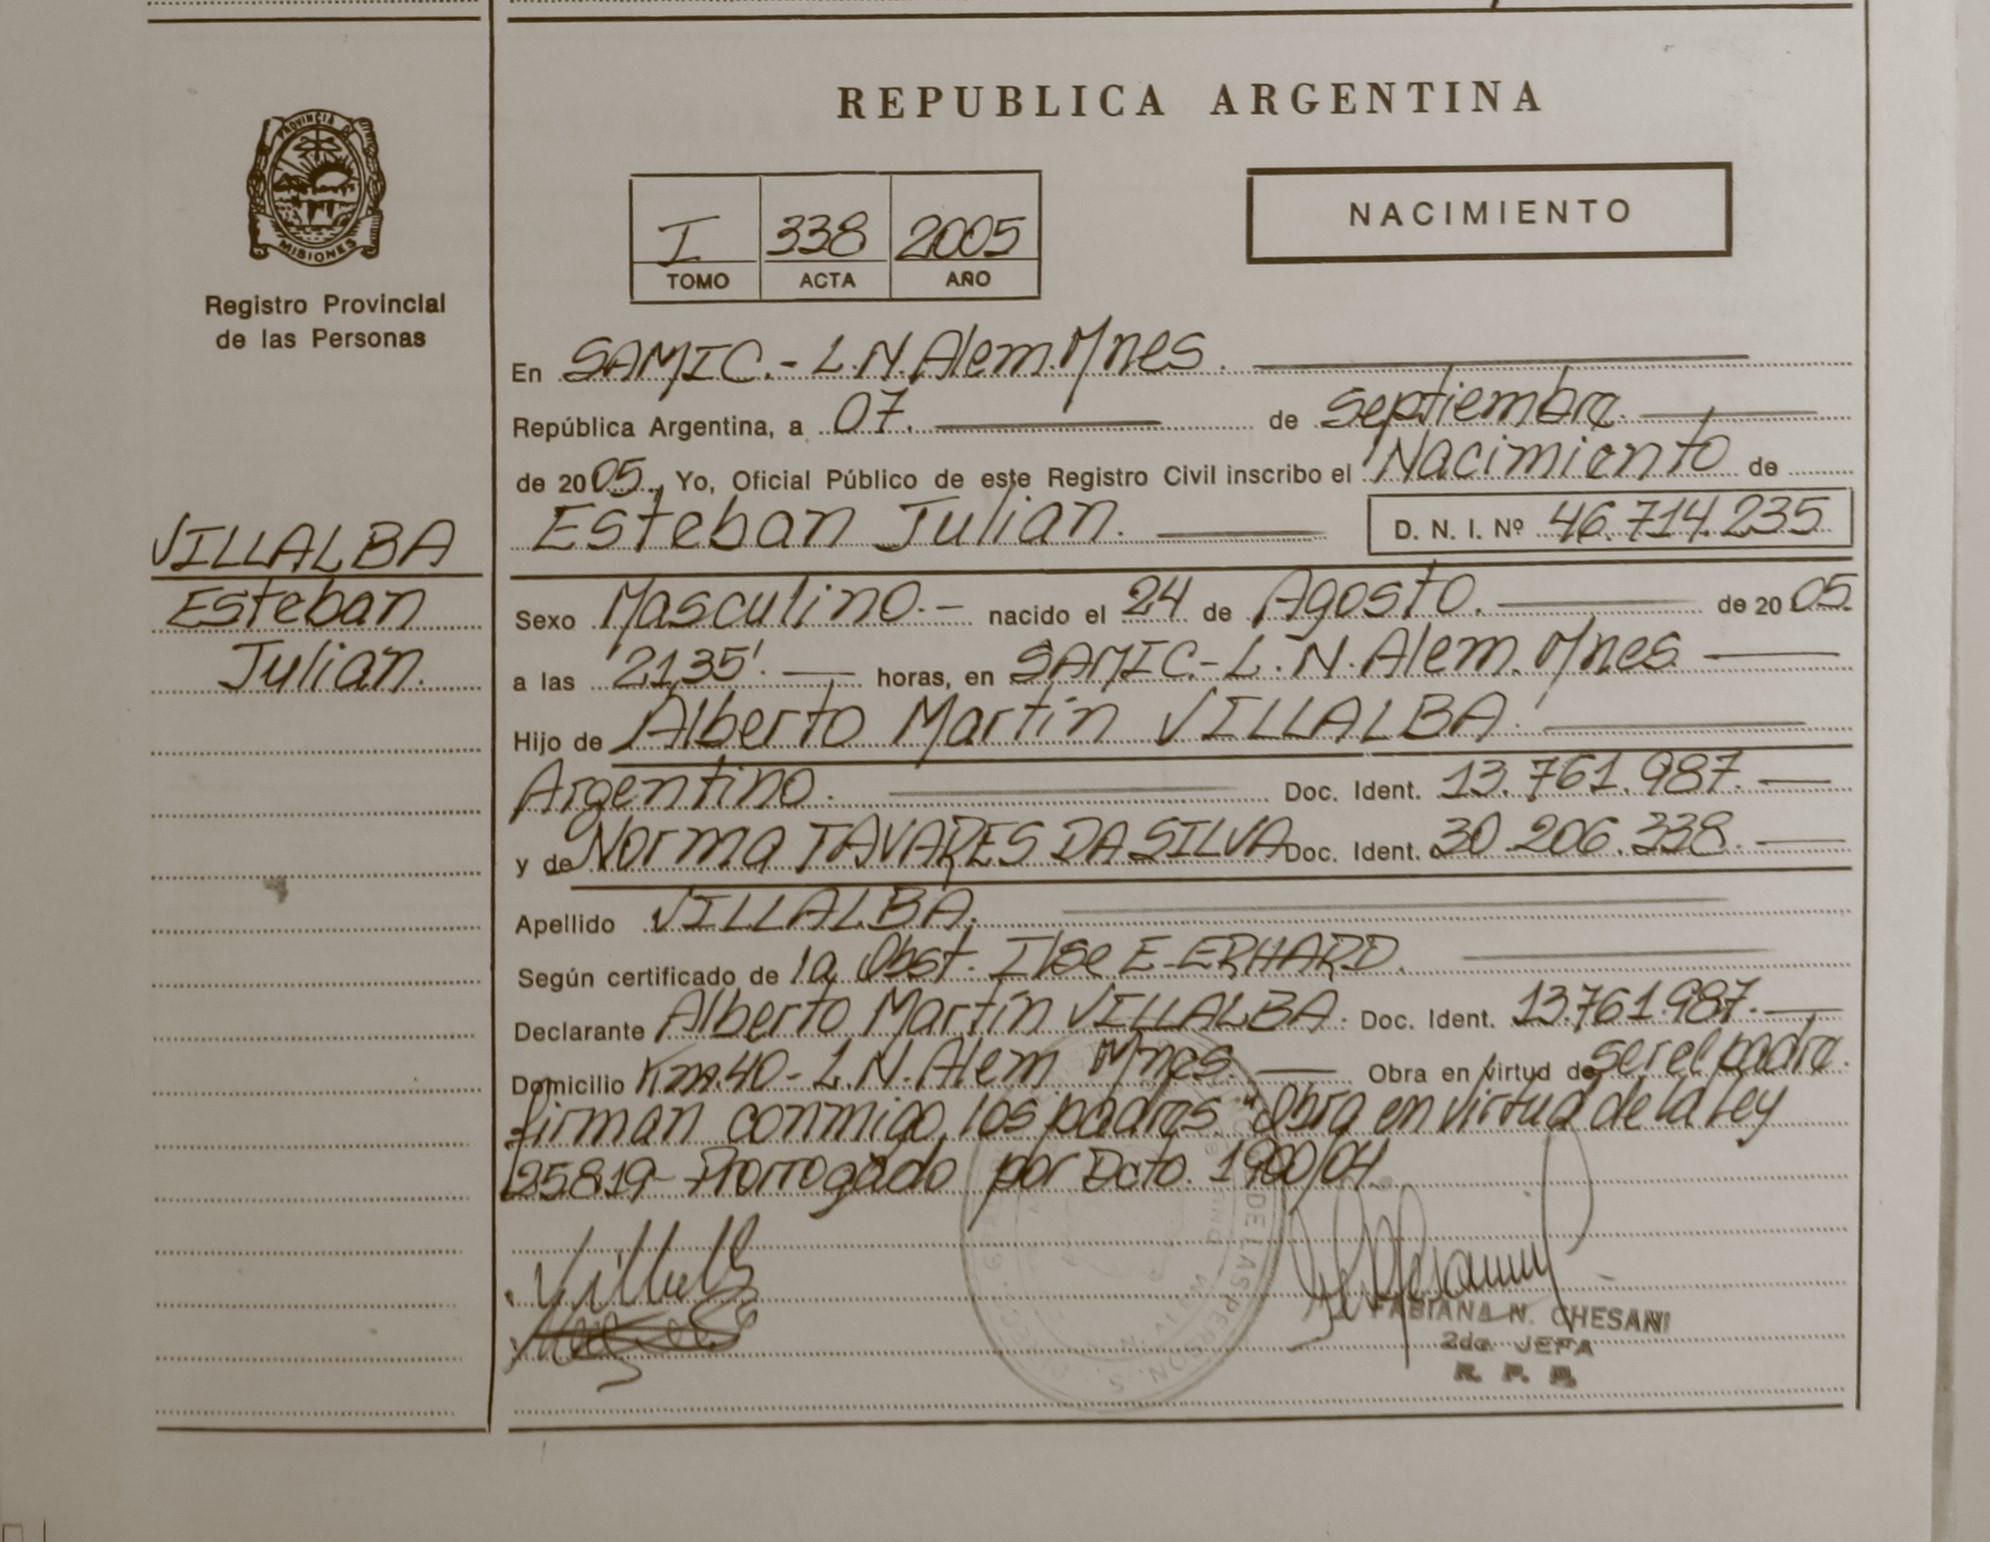 REPUBLICA ARGENTINA
PROVINCIA DE
MISIONES
Registro Provincial
de las Personas
I 338 2005
TOMO ACTA AÑO
NACIMIENTO
En SAMIC.- L.N.Alem.Mnes.
República Argentina, a 07. de Septiembre.
de 2005. Yo, Oficial Público de este Registro Civil inscribo el Nacimiento de
Esteban Julian. D. N. I. Nº 46.714.235
VILLALBA
Esteban
Julian.
Sexo Masculino.- nacido el 24 de Agosto. de 2005.
a las 21,35'. horas, en SAMIC.- L.N.Alem.Mnes.
Hijo de Alberto Martín VILLALBA.
Argentino. Doc. Ident. 13.761.987.
y de Norma TAVARES DA SILVA Doc. Ident. 30.206.338.
Apellido VILLALBA.
Según certificado de la Obst. Ilse E. ERHARD.
Declarante Alberto Martín VILLALBA. Doc. Ident. 13.761.987.
Domicilio Km.40- L.N.Alem Mnes. Obra en virtud de ser el padre.
firman conmigo, los padres." Obra en virtud de la Ley
25819- Prorrogado por Dcto. 1900/04.
FABIANA N. CHESANI
2da. JEFA
R. P. P.